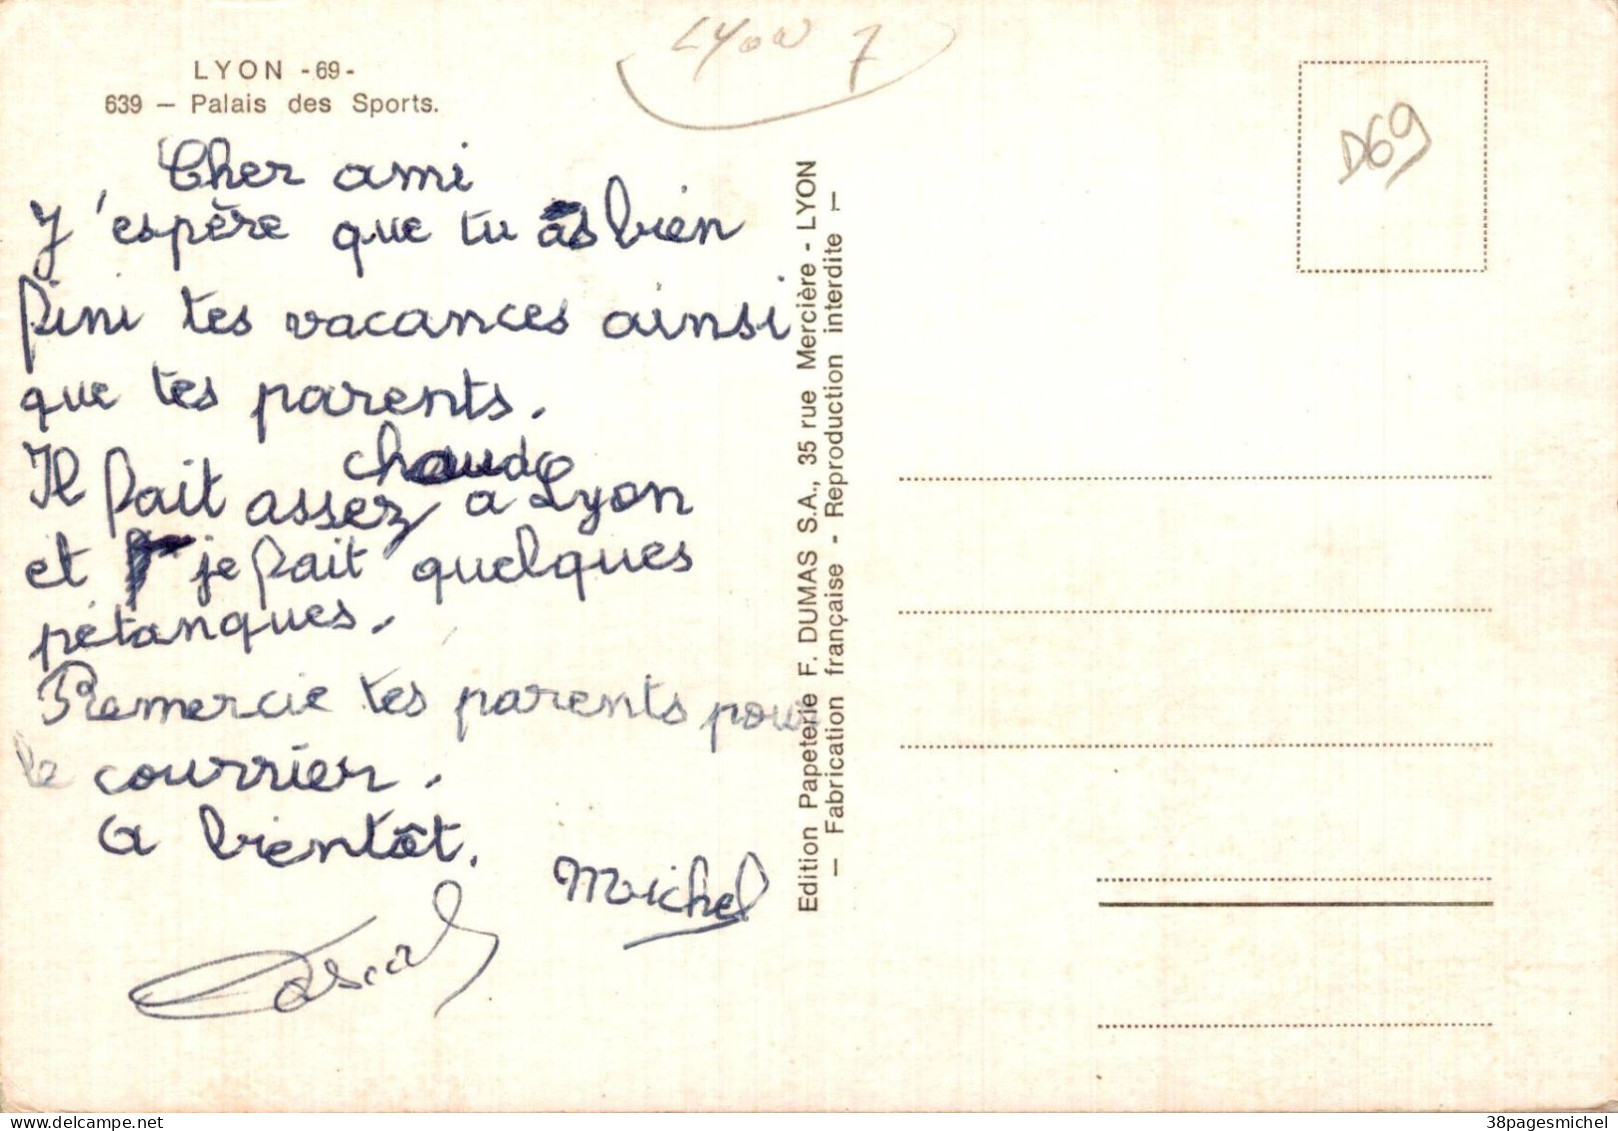 LYON - 69 -
639 — Palais des Sports.
Lyon 7
D69
Cher ami
J'espère que tu as bien
fini tes vacances ainsi
que tes parents.
Il fait assez chaud a Lyon
et je fait quelques
pétanques.
Remercie tes parents pour
le courrier.
a bientôt.
Michel
Pascal
Edition Papeterie F. DUMAS S.A., 35 rue Mercière - LYON
— Fabrication française - Reproduction interdite —
38pagesmichel